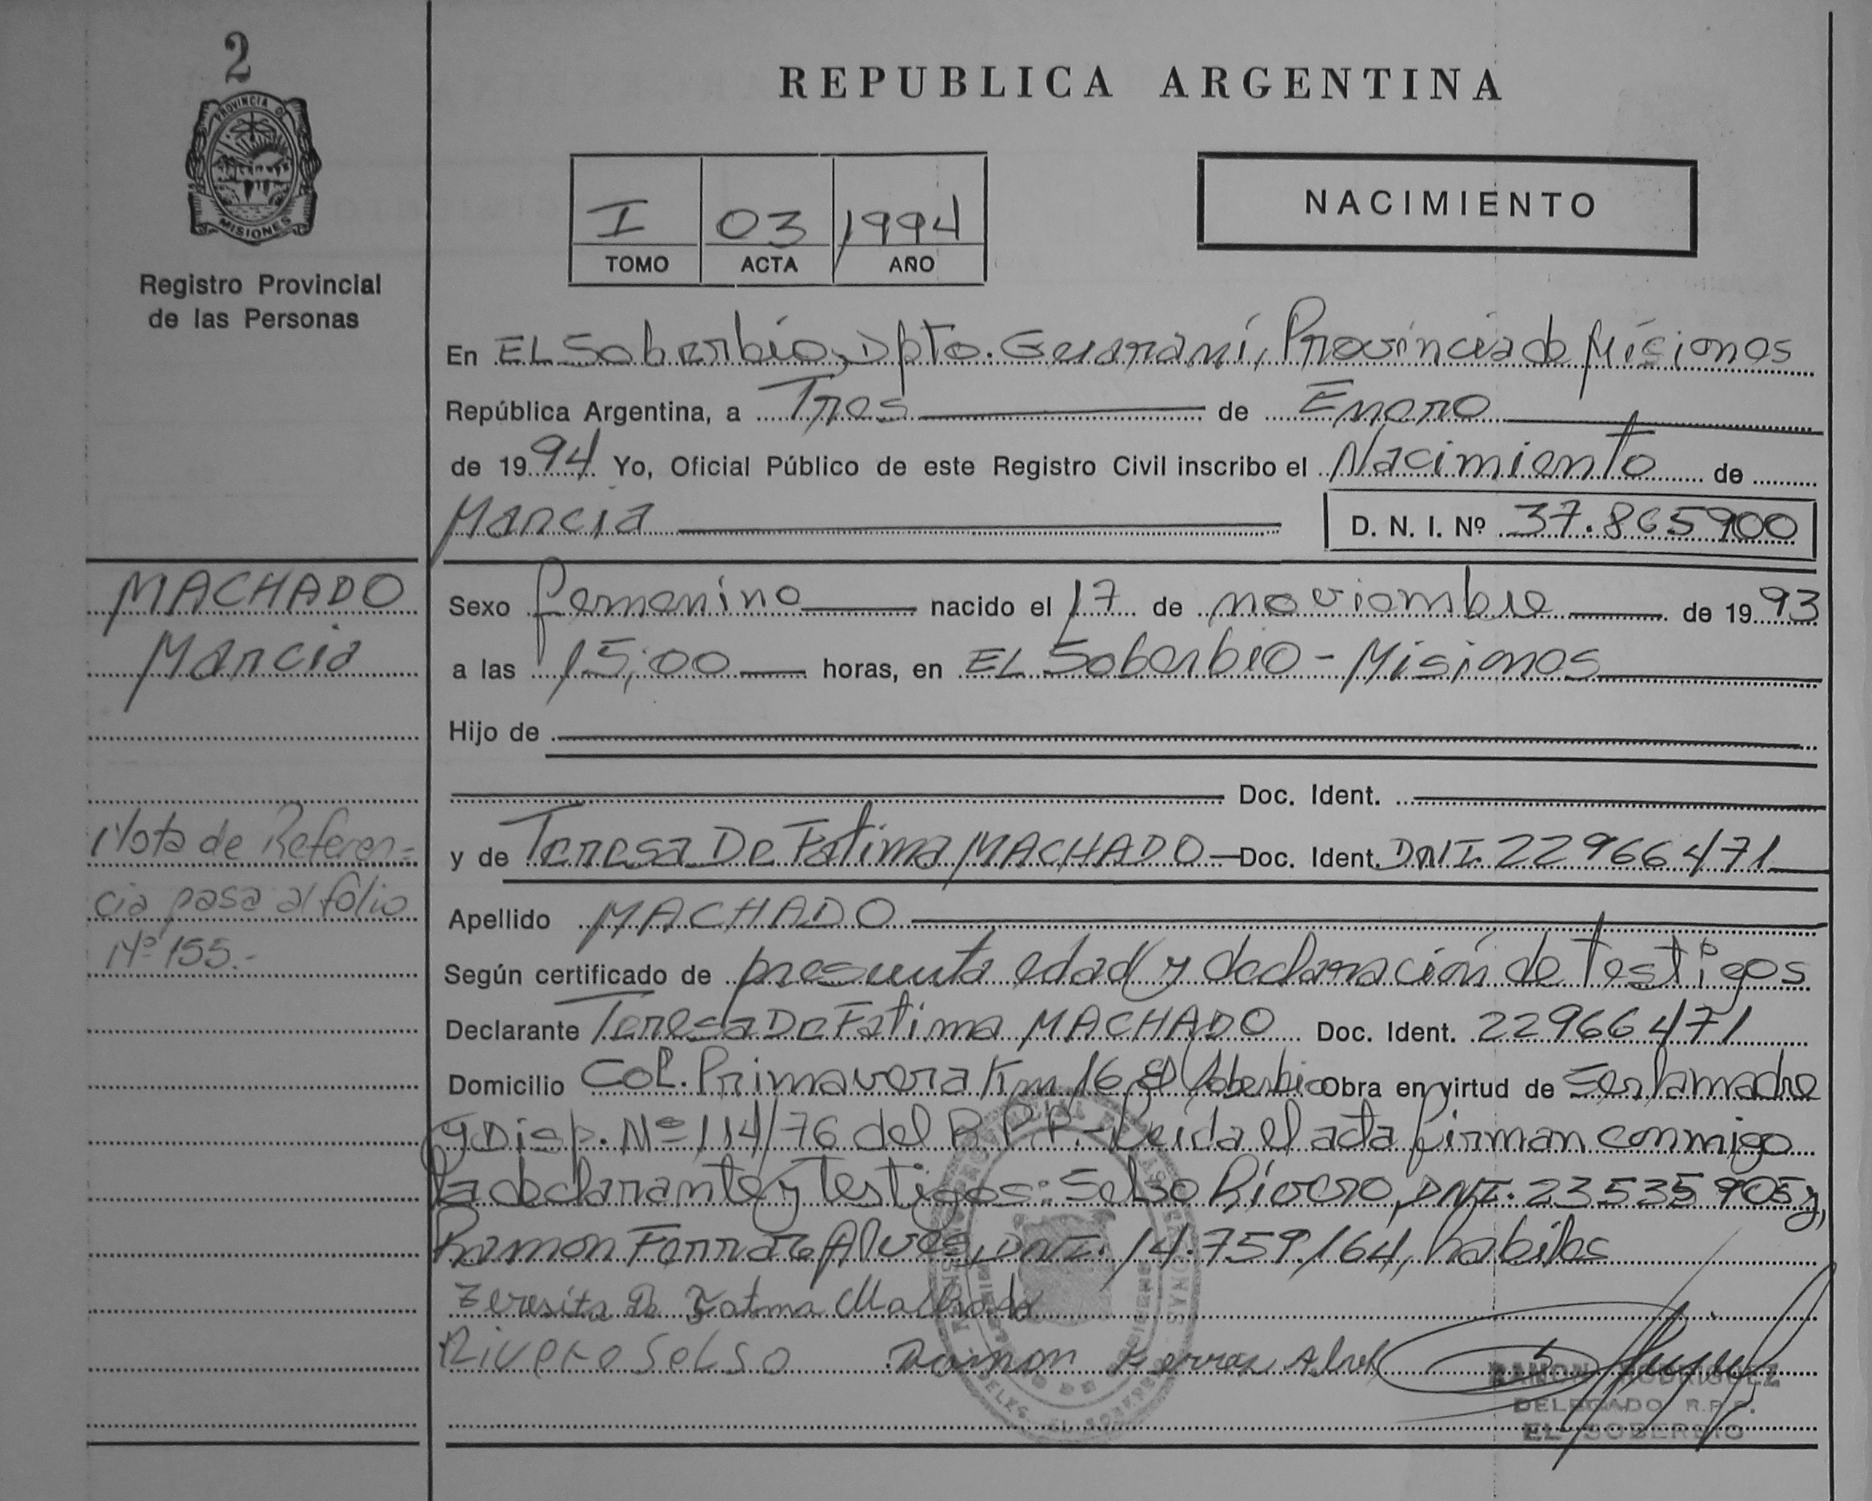 2
REPUBLICA ARGENTINA
PROVINCIA DE
MISIONES
Registro Provincial
de las Personas
I 03 1994
TOMO ACTA AÑO
NACIMIENTO
En EL Soberbio, Dpto. Guaraní, Provincia de Misiones
República Argentina, a Tres de Enero
de 1994 Yo, Oficial Público de este Registro Civil inscribo el Nacimiento de
Marcia D. N. I. Nº 37.865900
MACHADO
Marcia
Sexo femenino nacido el 17 de noviembre de 1993
a las 15,00 horas, en EL Soberbio - Misiones
Hijo de
Doc. Ident.
y de Teresa De Fatima MACHADO Doc. Ident. DNI. 22966471
Nota de Referen=
cia pasa al folio
Nº 155.-
Apellido MACHADO
Según certificado de presunta edad y declaración de testigos
Declarante Teresa De Fatima MACHADO Doc. Ident. 22966471
Domicilio Col. Primavera Km 16 El Soberbio Obra en virtud de ser la madre
y Disp. Nº 114/76 del R.P.P.- Leida el acta firman conmigo
la declarante y testigos: Selso Rivero, DNI. 23535905 y,
Ramon Ferraz Alves, DNI. 14.759.164, habiles
Teresita De Fatima Machado
Rivero Selso Ramon Ferraz Alves
RAMON RODRIGUEZ
DELEGADO R.P.P.
EL SOBERBIO